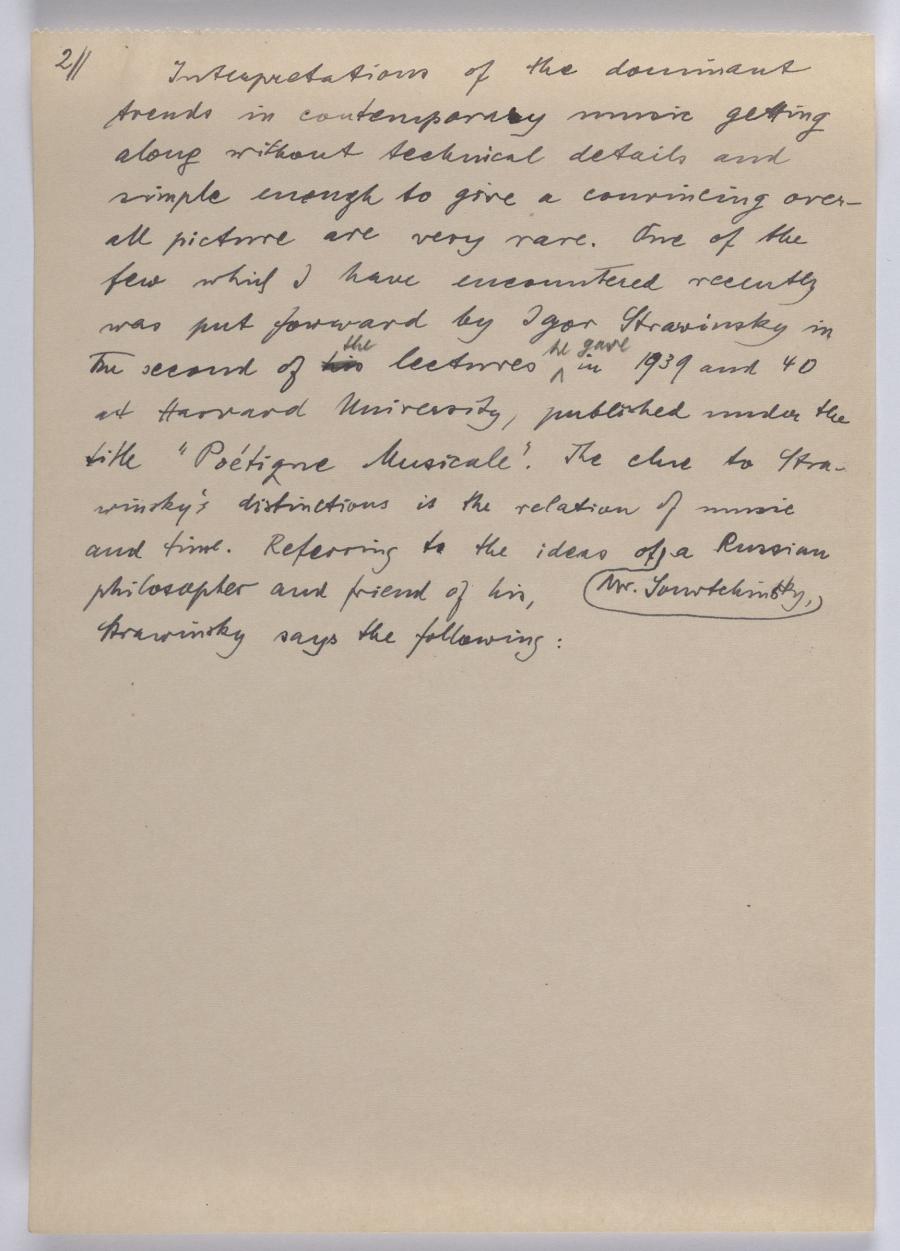 2//
Interpretations of the dominant
trends in contemporary music getting
along without technical details and
simple enough to give a convincing over-
all picture are very rare. One of the
few which I have encountered recently
was put forward by Igor Strawinsky in
the second of his the lectures he gave in 1939 and 40
at Harvard University, published under the
title "Poétique Musicale". The clue to Stra-
winsky's distinctions is the relation of music
and time. Referring to the ideas of a Russian
philosopher and friend of his, Mr. Souvtchinsky,
Strawinsky says the following: